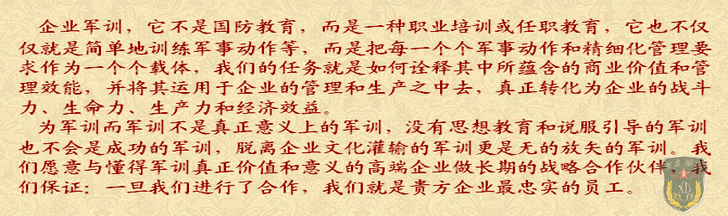 企业军训，它不是国防教育，而是一种职业培训或任职教育，它也不仅
仅就是简单地训练军事动作等，而是把每一个个军事动作和精细化管理要
求作为一个个载体，我们的任务就是如何诠释其中所蕴含的商业价值和管
理效能，并将其运用于企业的管理和生产之中去，真正转化为企业的战斗
力、生命力、生产力和经济效益。
为军训而军训不是真正意义上的军训，没有思想教育和说服引导的军训
也不会是成功的军训，脱离企业文化灌输的军训更是无的放矢的军训。我
们愿意与懂得军训真正价值和意义的高端企业做长期的战略合作伙伴，我
们保证：一旦我们进行了合作，我们就是贵方企业最忠实的员工。